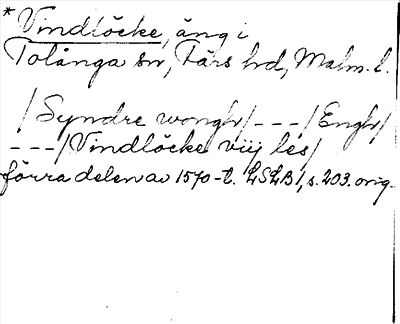 * Vindlöcke, äng i
Tolånga sn, Färs hd, Malm. l.
/Syndre wongh/---/Engh/
---/Vindlöcke viij les/
förra delen av 1570-t. LSLB 1, s. 203. orig.